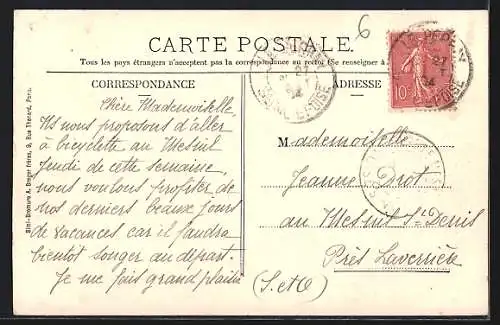 6
CARTE POSTALE.
Tous les pays étrangers n'acceptent pas la correspondance au recto (Se renseigner à
CORRESPONDANCE
Chère Mademoiselle,
Ns nous proposons d'aller
à bicyclette au Mesnil
jeudi de cette semaine,
nous voulons profiter de
nos derniers beaux jours
de vacances car il faudra
bientôt songer au départ.
Je me fais grand plaisir
ADRESSE
27
04
10
Mademoiselle
Jeanne Drot
au Mesnil St Denis
Près Laverrière
(S. et O)
A. Breger frères, 9, Rue Thénard, Paris.